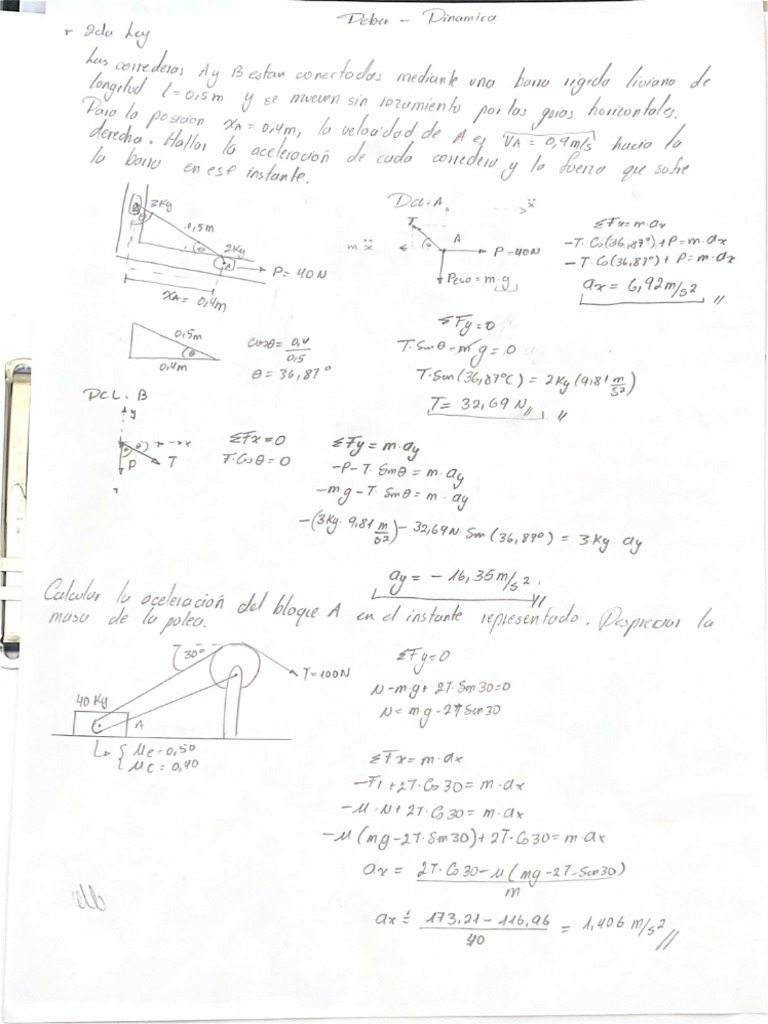 Deber - Dinamica
r 2da Ley
Las correderas A y B estan conectadas mediante una barra rigida liviana de
longitud l = 0,5 m y se mueven sin rozamiento por las guias horizontales.
Para la posicion xA = 0,4m, la velocidad de A es VA = 0,9 m/s hacia la
derecha. Hallar la aceleración de cada corredera y la fuerza que sufre
la barra en ese instante.
B 3Kg
θ
0,5m
θ
2Kg
A
P = 40N
xA = 0,4m
DCL: A
ẍ
T
θ
A
P = 40N
m ẍ
Peso = m·g
ΣFx = m·ax
-T·Cos(36,87°) + P = m·ax
-T·Cos(36,87°) + P = m·ax
ax = 6,92 m/s2 //
0,5m
θ
0,4m
Cosθ = 0,4/0,5
θ = 36,87°
ΣFy = 0
T·Senθ - m·g = 0
T·Sen(36,87°C) = 2Kg (9,81 m/s2)
T = 32,69 N //
DCL. B
+y
θ
P
T
ΣFx = 0
T·Cosθ = 0
ΣFy = m·ay
-P - T·Senθ = m·ay
-mg - T·Senθ = m·ay
-(3Kg·9,81 m/s2) - 32,69N·Sen(36,87°) = 3Kg ay
ay = -16,35 m/s2 //
Calcular la aceleración del bloque A en el instante representado. Despreciar la
masa de la polea.
30°
T = 100N
40 Kg
A
μe = 0,50
μc = 0,40
ΣFy = 0
N - m·g + 2T·Sen30 = 0
N = m·g - 2T Sen30
ΣFx = m·ax
-F1 + 2T·Co30 = m·ax
-μ·N + 2T·Co30 = m·ax
-μ(mg - 2T·Sen30) + 2T·Co30 = m·ax
ax = 2T·Co30 - μ(mg - 2T·Sen30) / m
ax = 173,21 - 116,96 / 40 = 1,406 m/s2 //